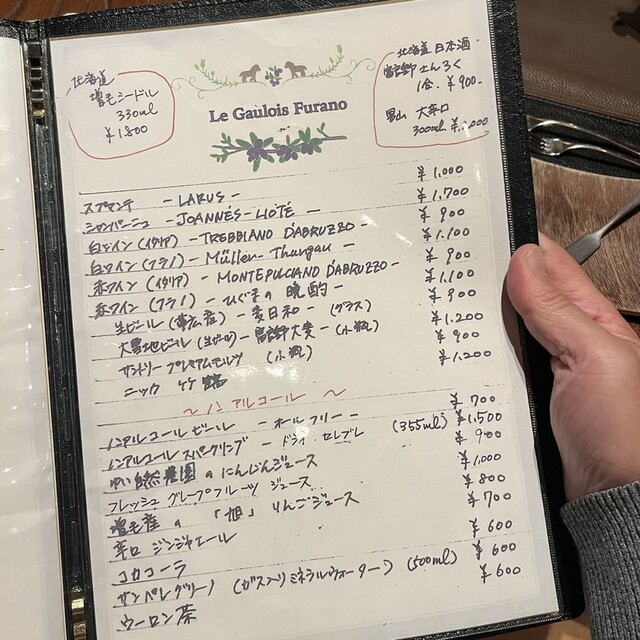 北海道
増毛シードル
330ml
¥1800
北海道 日本酒
富良野 さんろく
1合. ¥900-
男山 大辛口
300ml ¥2,000
Le Gaulois Furano
スプマンテ - LARUS - ¥1.000
シャンパーニュ - JOANNÈS-LIOTÉ - ¥1,700
白ワイン(イタリア) - TREBBIANO D'ABRUZZO - ¥900
白ワイン(フラノ) - Müller-Thurgau - ¥1.100
赤ワイン(イタリア) - MONTEPULCIANO D'ABRUZZO - ¥900
赤ワイン(フラノ) - ひぐまの晩酌 - ¥1.100
生ビール - 麦日和 - (グラス) ¥900
(生ビール) - 富良野大麦 - (小瓶) ¥1.200
サントリー プレミアムモルツ (小瓶) ¥900
ニッカ 竹鶴 ¥1.200
～ ノンアルコール ～
ノンアルコールビール - オールフリー - ¥700
ノンアルコール スパークリング - ドライ セレブレ (355ml) ¥1,500
自然農園のにんじんジュース ¥900
フレッシュ グレープフルーツ ジュース ¥1,000
増毛産の「旭」りんごジュース ¥800
辛口 ジンジャエール ¥700
コカコーラ ¥600
サンペレグリーノ (ガス入りミネラルウォーター) (500ml) ¥600
ウーロン茶 ¥600